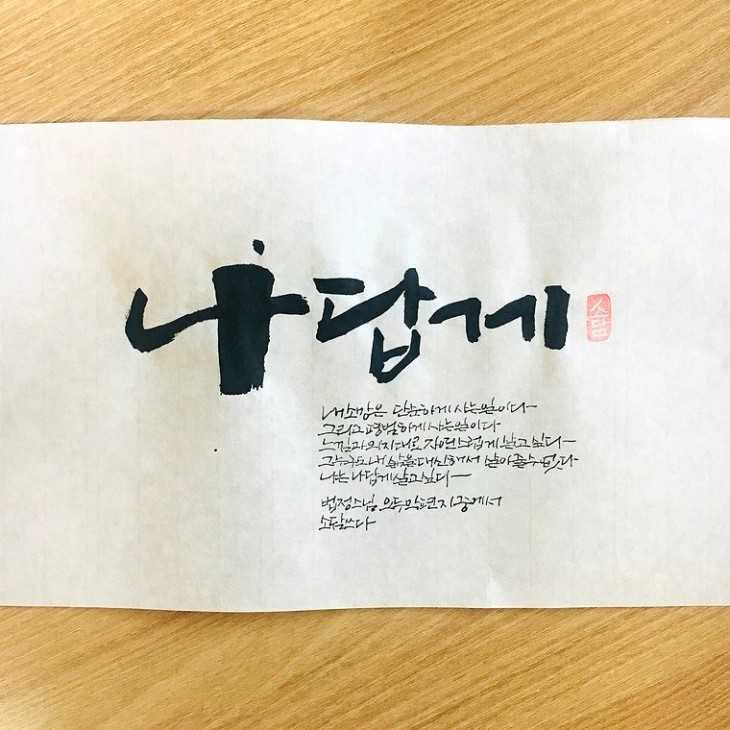 나답게
소담
내 소망은 단순하게 사는 일이다
그리고 평범하게 사는 일이다
느낌과 의지대로 자연스럽게 살고 싶다
그 누구도 내 삶을 대신해서 살아줄 수 없다
나는 나답게 살고 싶다
법정스님 오두막편지 중에서
소담쓰다